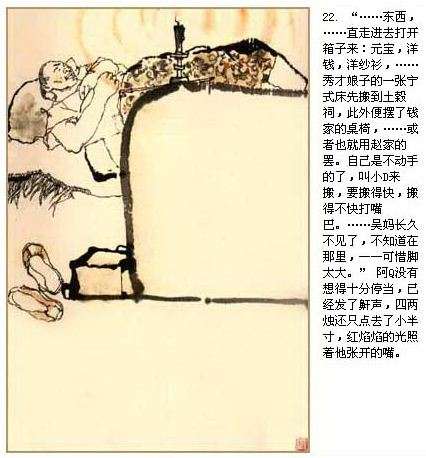 22. “……东西，
……直走进去打开
箱子来：元宝，洋
钱，洋纱衫，……
秀才娘子的一张宁
式床先搬到土穀
祠，此外便摆了钱
家的桌椅，……或
者也就用赵家的
罢。自己是不动手
的了，叫小D来
搬，要搬得快，搬
得不快打嘴
巴。……吴妈长久
不见了，不知道在
那里，——可惜脚
太大。” 阿Q没有
想得十分停当，已
经发了鼾声，四两
烛还只点去了小半
寸，红焰焰的光照
着他张开的嘴。